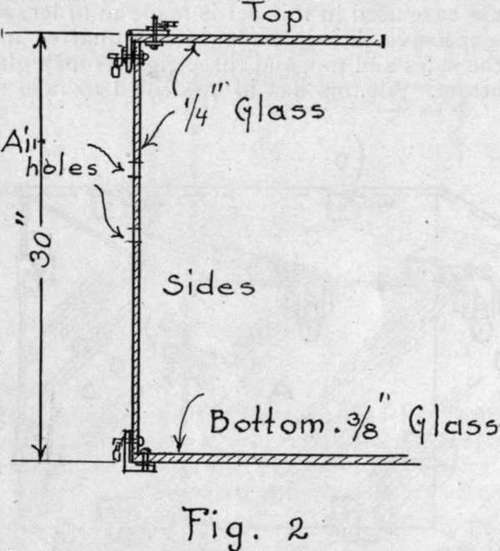 Top
1/4" Glass
Air
holes
30"
Sides
Bottom. 3/8" Glass
Fig. 2